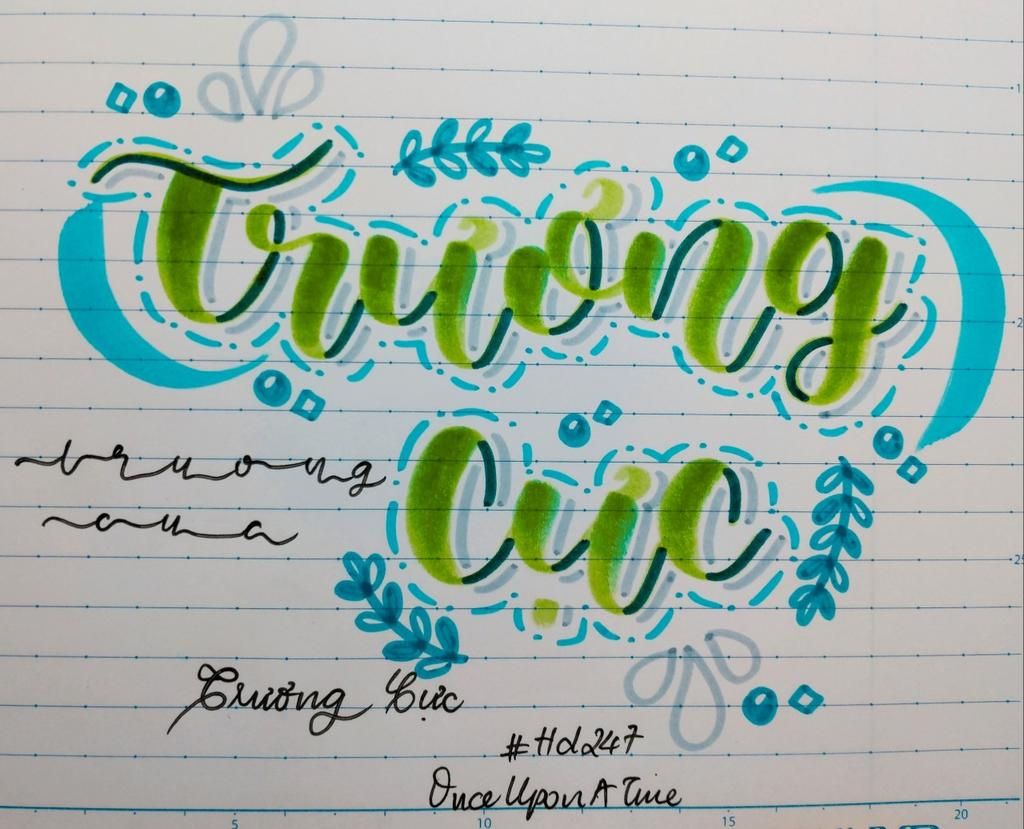 Trương
Cực
truong
Trương Cực
#Hd247
Once Upon A Time
5 10 15 20